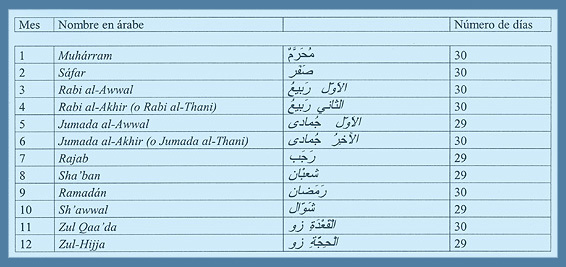 Mes Nombre en árabe Número de días
1 Muhárram مُحَرَّمٌ 30
2 Sáfar صَفَر 30
3 Rabi al-Awwal رَبيعُ الأوّل 30
4 Rabi al-Akhir (o Rabi al-Thani) رَبيعُ الثاني 30
5 Jumada al-Awwal جُمادى الأوّل 29
6 Jumada al-Akhir (o Jumada al-Thani) جُمادى الآخرُ 30
7 Rajab رَجَب 29
8 Sha'ban شعبْان 29
9 Ramadán رَمَضان 30
10 Sh'awwal شَوّال 29
11 Zul Qaa'da زو الْقَعْدَةِ 30
12 Zul-Hijja زو الْحِجَّةِ 29